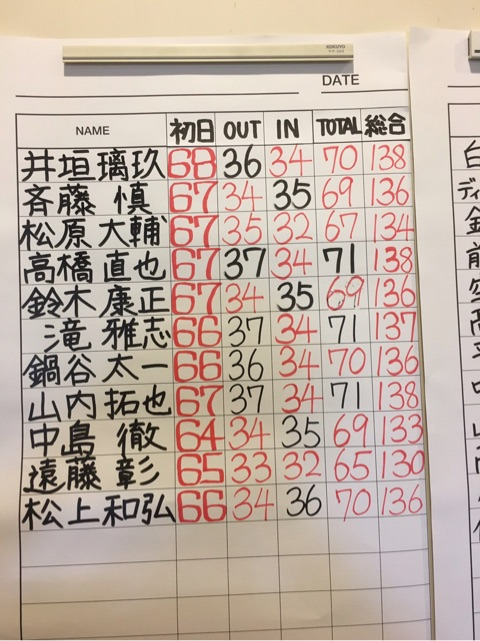 KOKUYO
DATE
NAME 初日 OUT IN TOTAL 総合
井垣璃玖 68 36 34 70 138
斉藤 慎 67 34 35 69 136
松原大輔 67 35 32 67 134
高橋直也 67 37 34 71 138
鈴木康正 67 34 35 69 136
滝 雅志 66 37 34 71 137
鍋谷太一 66 36 34 70 136
山内拓也 67 37 34 71 138
中島 徹 64 34 35 69 133
遠藤 彰 65 33 32 65 130
松上和弘 66 34 36 70 136